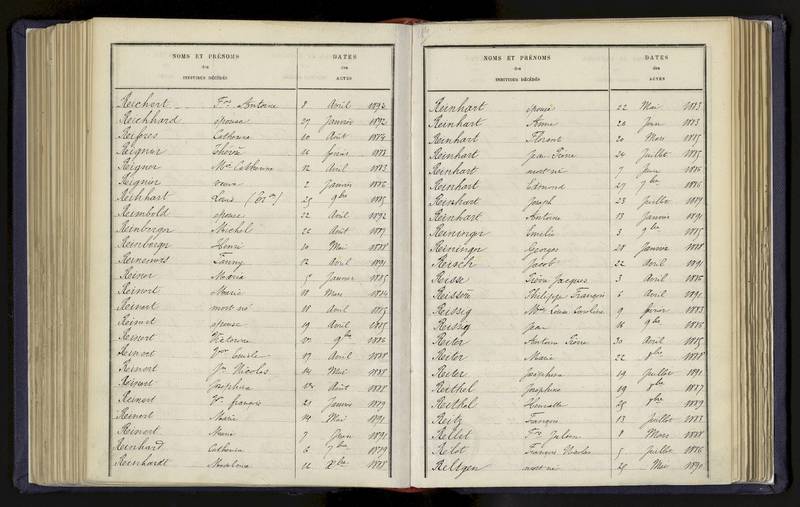 NOMS ET PRÉNOMS
des
INDIVIDUS DÉCÉDÉS
DATES
des
ACTES
Reichert Frs Antoine 8 Avril
Reichhard épouse 27 Janvier 1892
Reifres Catherine 20 Août 1884
Reignier Thérèse 1883
Reigner Mie Catherine 12 Avril 1883
Reignier 2 Janvier 1886
Reihhart Louis 25 9bre 1885
Reimbold épouse 22 Avril 1892
Reinberger Michel 22 Août 1887
Reinberger Henri 20 Mai 1888
Fanny 12 Avril 1891
Reiner Maria Janvier 1885
Reinert Marie 18 Mars 1884
Reinert mort né 18 Avril 1885
Reinert épouse 19 Avril 1885
Reinert Victorine 9bre 1886
Reinert Vve 17 Avril 1888
Reinert Jn Nicolas 14 Mai 1888
Reinert Joséphine Août 1888
Reinert François 21 Janvier 1889
Reinert Marie 14 Mai 1891
Reinert 7 Juin 1891
Reinhard Catherine 6 7bre 1889
Reinhardt Madeleine 12 Xbre 1888
NOMS ET PRÉNOMS
des
INDIVIDUS DÉCÉDÉS
DATES
des
ACTES
Reinhart épouse 22 Mai 1883
Reinhart Anne 20 Juin 1883
Reinhart Florent 20 Mars 1885
Reinhart Jean Pierre 24 Juillet 1885
Reinhart mort né 7 Juin 1886
Reinhart Edmond 27 7bre 1886
Reinhart Joseph 23 Juillet 1889
Reinhart Antoine 13 Janvier 1891
Reininger Emélie 3 9bre 1885
Reininger Georges 28 Janvier 1888
Reisch Jacob 22 Avril 1891
Reisse Pierre Jacques 3 Avril 1886
Reisser Philippe François 6 Avril 1891
Reissig Mie Louise Caroline 9 Février 1883
Reissig Jean 16 9bre 1886
Reiter Antoine Pierre 30 Avril 1885
Reiter Marie 22 8bre 1888
Reiter Joséphine 19 Juillet 1891
Reithel Joséphine 19 1887
Reithel Henriette 25 1889
Reitz François 13 Juillet 1883
Frs Julien 8 Mars 1888
François Nicolas 5 Juillet 1886
Reltgen mort né 25 Mai 1890